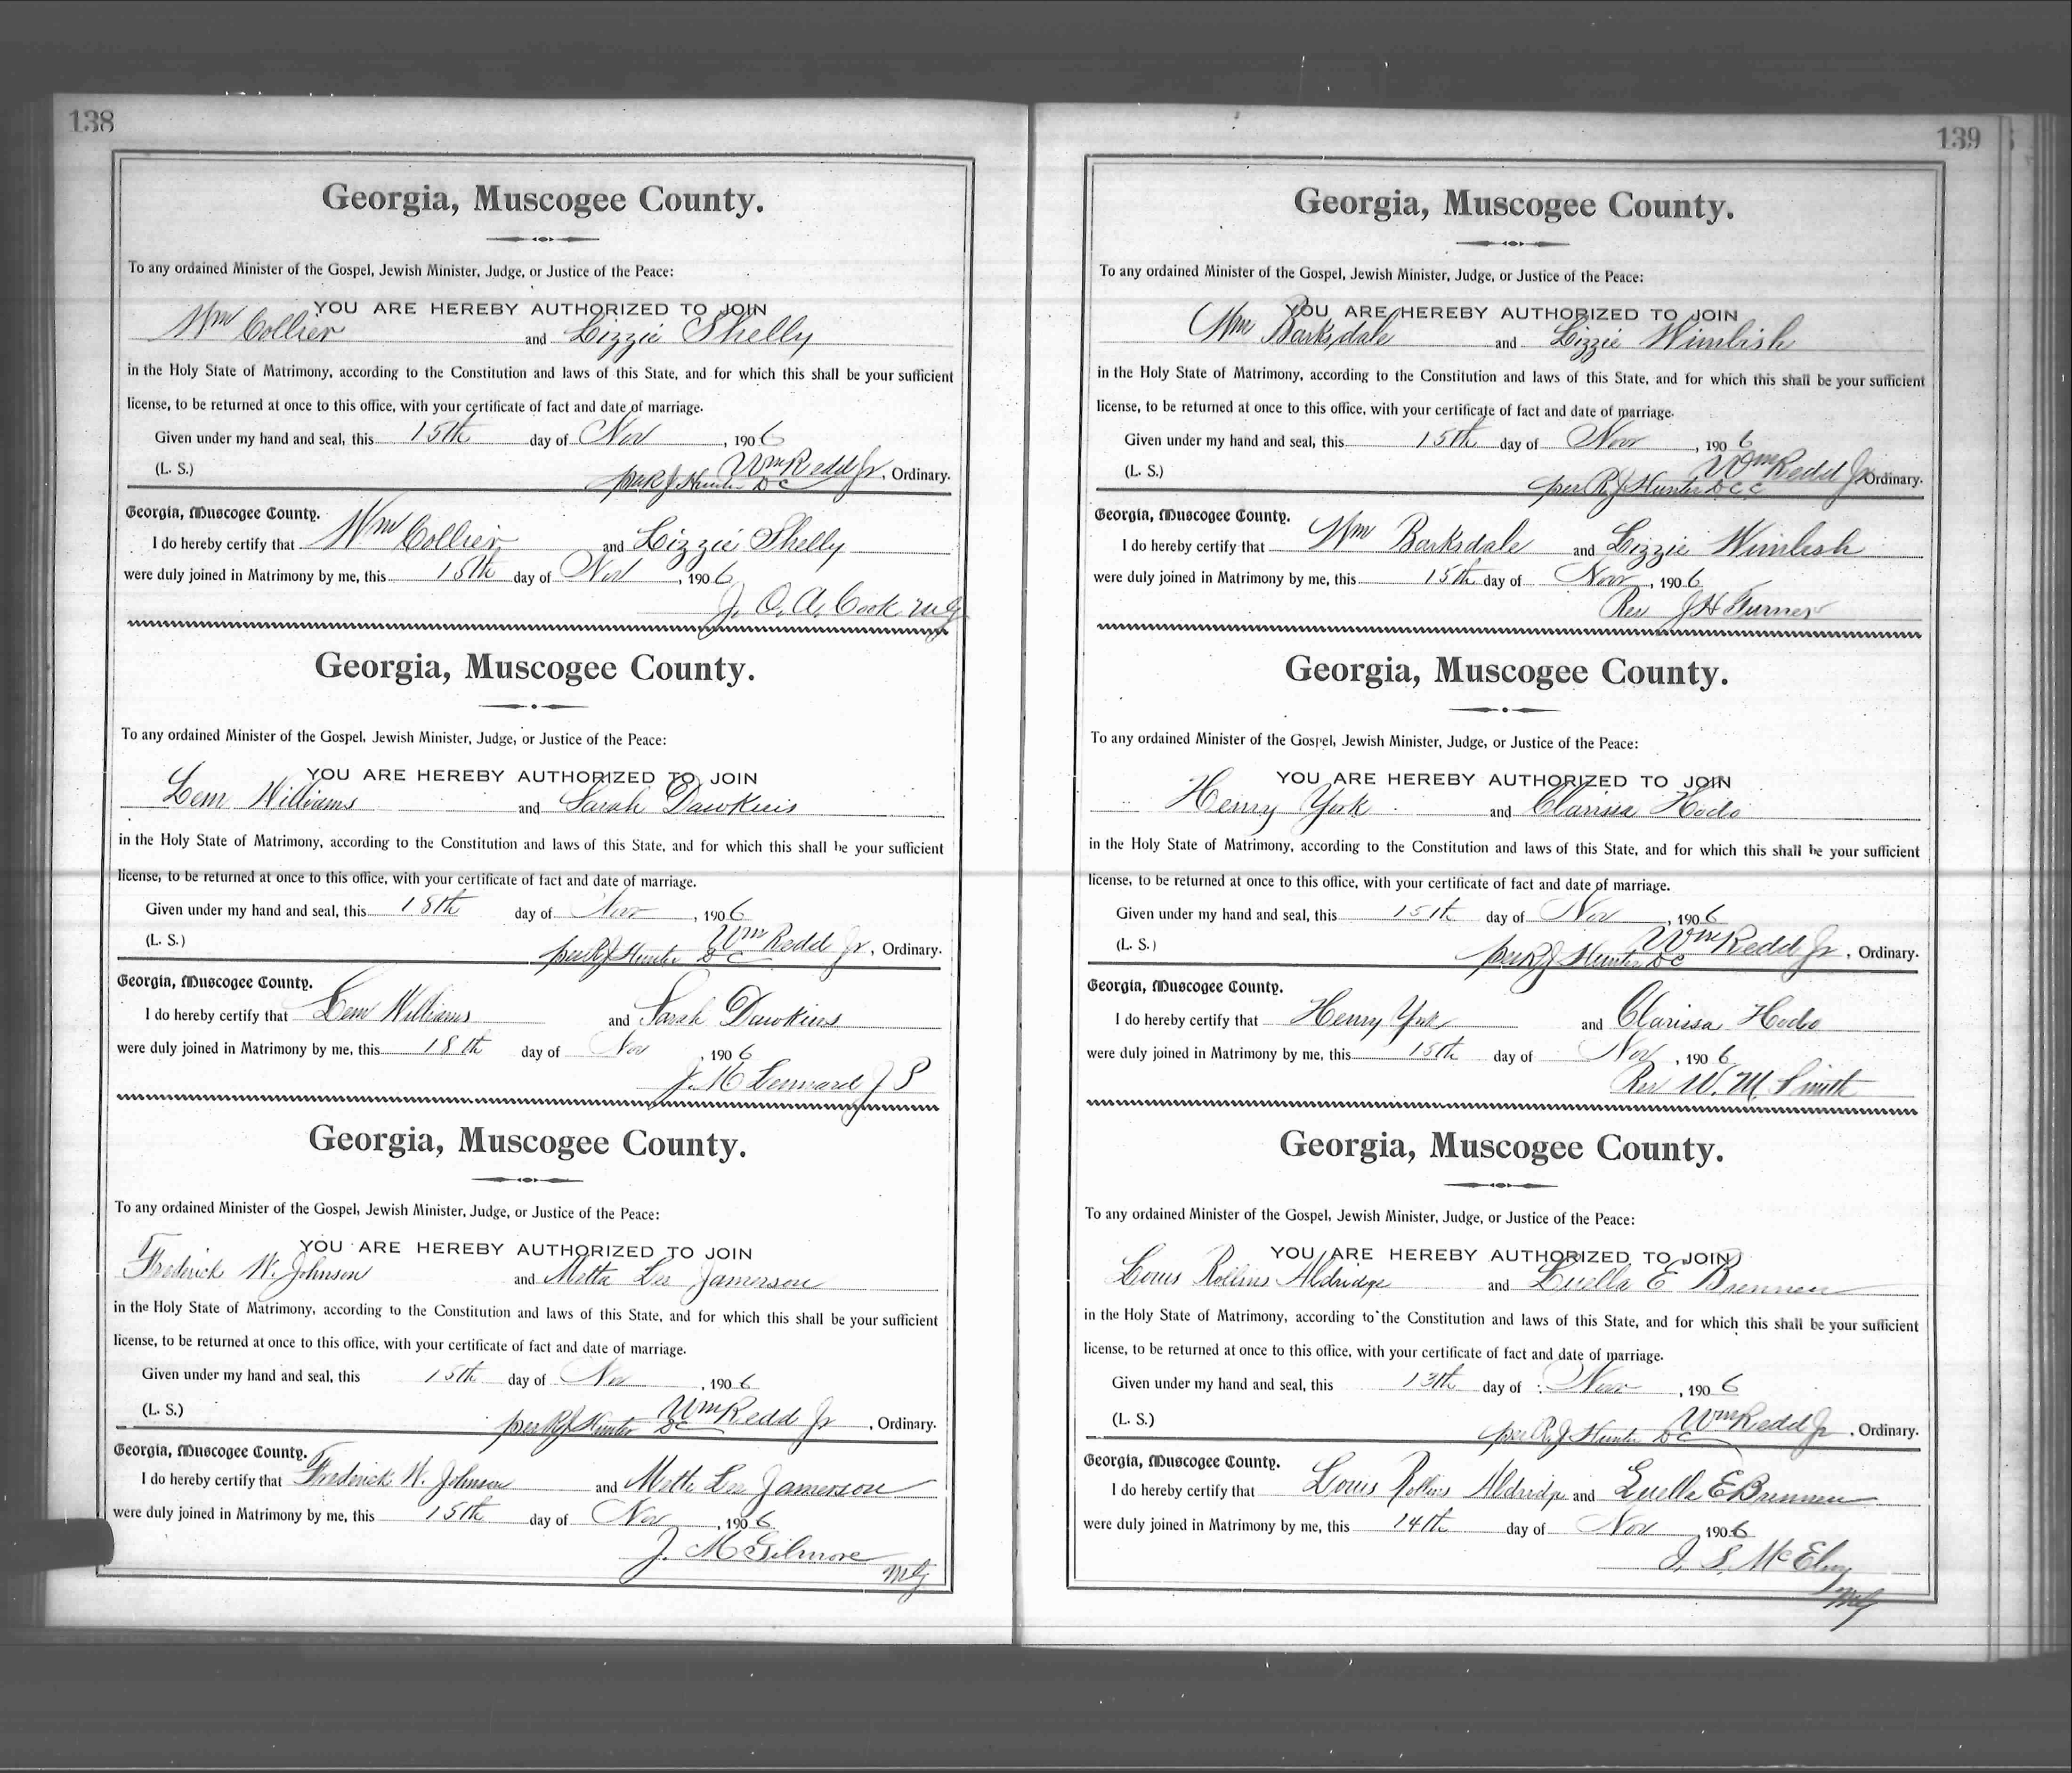 138
Georgia, Muscogee County.
To any ordained Minister of the Gospel, Jewish Minister, Judge, or Justice of the Peace:
YOU ARE HEREBY AUTHORIZED TO JOIN
Wm Collier and Lizzie Shelly
in the Holy State of Matrimony, according to the Constitution and laws of this State, and for which this shall be your sufficient
license, to be returned at once to this office, with your certificate of fact and date of marriage.
Given under my hand and seal, this 15th day of Nov, 1906
(L. S.) Wm Redd Jr, Ordinary.
per RJ Hunter DC
Georgia, Muscogee County.
I do hereby certify that Wm Collier and Lizzie Shelly
were duly joined in Matrimony by me, this 15th day of Nov, 1906
J. O. A. Cook MG
Georgia, Muscogee County.
To any ordained Minister of the Gospel, Jewish Minister, Judge, or Justice of the Peace:
YOU ARE HEREBY AUTHORIZED TO JOIN
Lem Williams and Sarah Dawkins
in the Holy State of Matrimony, according to the Constitution and laws of this State, and for which this shall be your sufficient
license, to be returned at once to this office, with your certificate of fact and date of marriage.
Given under my hand and seal, this 18th day of Nov, 1906
(L. S.) Wm Redd Jr, Ordinary.
per RJ Hunter DC
Georgia, Muscogee County.
I do hereby certify that Lem Williams and Sarah Dawkins
were duly joined in Matrimony by me, this 18th day of Nov, 1906
J. M Lennard J P
Georgia, Muscogee County.
To any ordained Minister of the Gospel, Jewish Minister, Judge, or Justice of the Peace:
YOU ARE HEREBY AUTHORIZED TO JOIN
Frederick W. Johnson and Metta Lee Jamerson
in the Holy State of Matrimony, according to the Constitution and laws of this State, and for which this shall be your sufficient
license, to be returned at once to this office, with your certificate of fact and date of marriage.
Given under my hand and seal, this 15th day of Nov, 1906
(L. S.) Wm Redd Jr, Ordinary.
per RJ Hunter DC
Georgia, Muscogee County.
I do hereby certify that Frederick W. Johnson and Lee Jamerson
were duly joined in Matrimony by me, this 15th day of Nov, 1906
J. M Gilmore
MG
139
Georgia, Muscogee County.
To any ordained Minister of the Gospel, Jewish Minister, Judge, or Justice of the Peace:
YOU ARE HEREBY AUTHORIZED TO JOIN
Wm Barksdale and Lizzie Wimbish
in the Holy State of Matrimony, according to the Constitution and laws of this State, and for which this shall be your sufficient
license, to be returned at once to this office, with your certificate of fact and date of marriage.
Given under my hand and seal, this 15th day of Nov, 1906
(L. S.) Wm Redd Jr Ordinary.
per R. J Hunter
Georgia, Muscogee County.
I do hereby certify that Wm Barksdale and Lizzie Wimbish
were duly joined in Matrimony by me, this 15th day of Nov, 1906
Rev J H Turner
Georgia, Muscogee County.
To any ordained Minister of the Gospel, Jewish Minister, Judge, or Justice of the Peace:
YOU ARE HEREBY AUTHORIZED TO JOIN
Henry York and Clarissa Hodo
in the Holy State of Matrimony, according to the Constitution and laws of this State, and for which this shall be your sufficient
license, to be returned at once to this office, with your certificate of fact and date of marriage.
Given under my hand and seal, this 15th day of Nov, 1906
(L. S.) Wm Redd Jr, Ordinary.
per RJ Hunter DC
Georgia, Muscogee County.
I do hereby certify that Henry York and Clarissa Hodo
were duly joined in Matrimony by me, this 15th day of Nov, 1906
Rev W. M. Smith
Georgia, Muscogee County.
To any ordained Minister of the Gospel, Jewish Minister, Judge, or Justice of the Peace:
YOU ARE HEREBY AUTHORIZED TO JOIN
Louis Rollins Aldridge and Luella E Brennen
in the Holy State of Matrimony, according to the Constitution and laws of this State, and for which this shall be your sufficient
license, to be returned at once to this office, with your certificate of fact and date of marriage.
Given under my hand and seal, this 13th day of Nov, 1906
(L. S.) Wm Redd Jr, Ordinary.
per R. J Hunter DC
Georgia, Muscogee County.
I do hereby certify that Louis Rollins Aldridge and Luella E Brennen
were duly joined in Matrimony by me, this 14th day of Nov, 1906
J. S. McElroy
MG